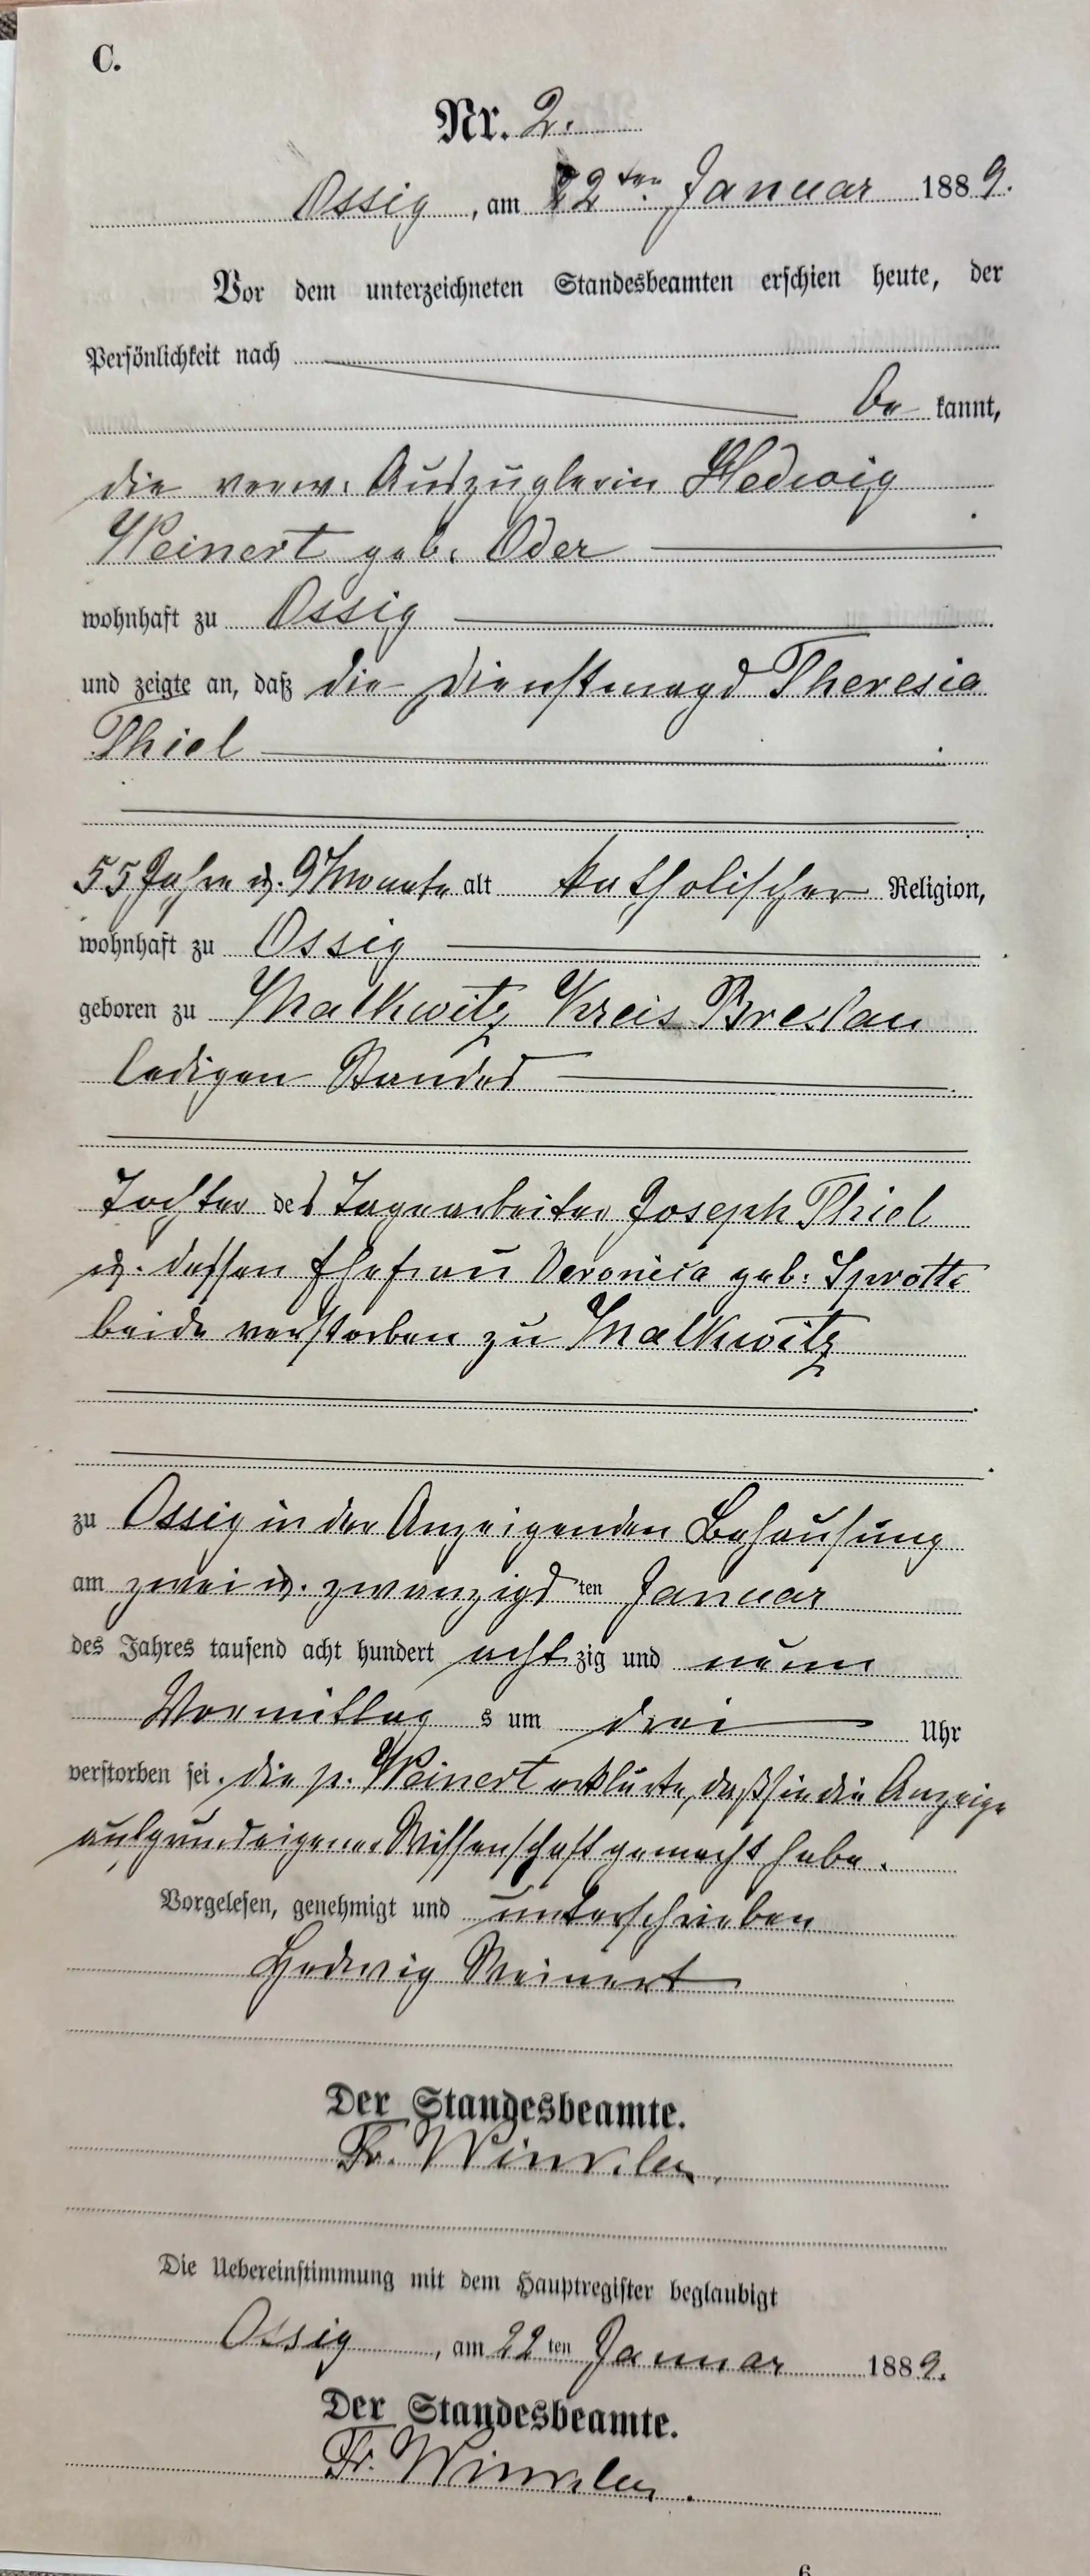 C.
Nr. 2.
Ossig, am 22ten Januar 1889.
Vor dem unterzeichneten Standesbeamten erschien heute, der
Persönlichkeit nach
be kannt,
die verw. Auszüglerin Hedwig
Weinert geb. Oder
wohnhaft zu Ossig
und zeigte an, daß die Dienstmagd Theresia
Thiel
55 Jahre u. 9 Monate alt katholischer Religion,
wohnhaft zu Ossig
geboren zu Malkwitz Kreis Breslau
ledigen Standes
Tochter des Tagearbeiter Joseph Thiel
u. dessen Ehefrau Veronica geb. Sprotte
beide verstorben zu Malkwitz
zu Ossig in der Anzeigenden Behausung
am zwei u. zwanzigs ten Januar
des Jahres tausend acht hundert acht zig und neun
Vormittag s um drei Uhr
verstorben sei. die p. Weinert erklärte, daß sie die Anzeige
aufgrund eigener Wissenschaft gemacht habe.
Vorgelesen, genehmigt und unterschrieben
Hedwig Weinert
Der Standesbeamte.
Fr. Winkler
Die Uebereinstimmung mit dem Hauptregister beglaubigt
Ossig, am 22 ten Januar 1889.
Der Standesbeamte.
Fr. Winkler.
6